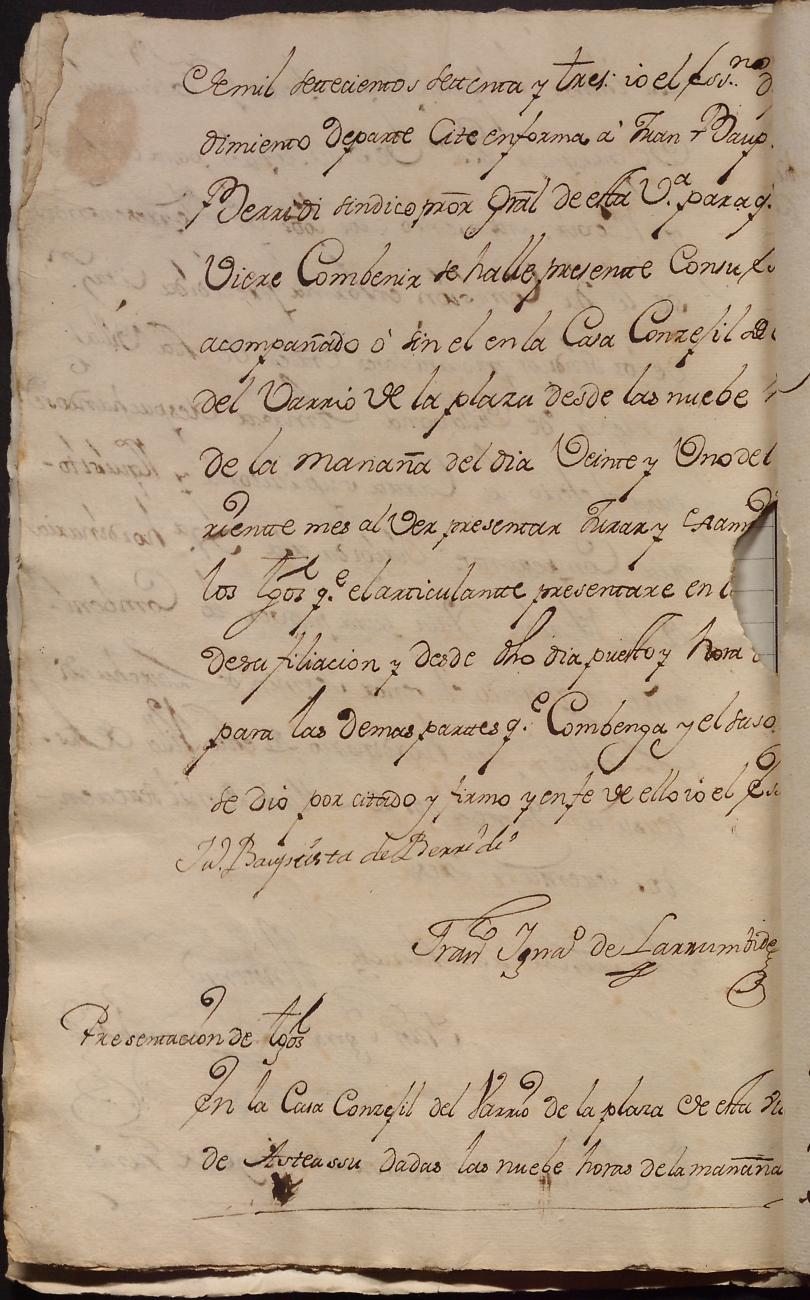 de mil settecientos settenta y tres: io el Ess.no
dimiento departe Cite enforma à Juan Baup.
Berridi sindico pror Gral de esta V.a para q.
Viere Combenir se halle presentte Consu
acompañado ò sin el en la Casa Conzejil
del Varrio de la plaza desde las nuebe
de la mañana del dia Veinte y Uno del
rientte mes al Ver presentar Jurar y Exam
los tgos q.e el articulantte presentare en
desu filiacion y desde dho dia puesto y hora
para las Demas parttes q.e Combenga y el suso
se dio por citado y firmo y enfe de ello io el Es
Ju. Bauptista de Berridi
Fran.co Igna.o de Larrumbide
Presentacion de tgos
En la Casa Conzejil del Varrio de la plaza de esta Vi
de Asteassu dadas las nuebe horas de la mañana